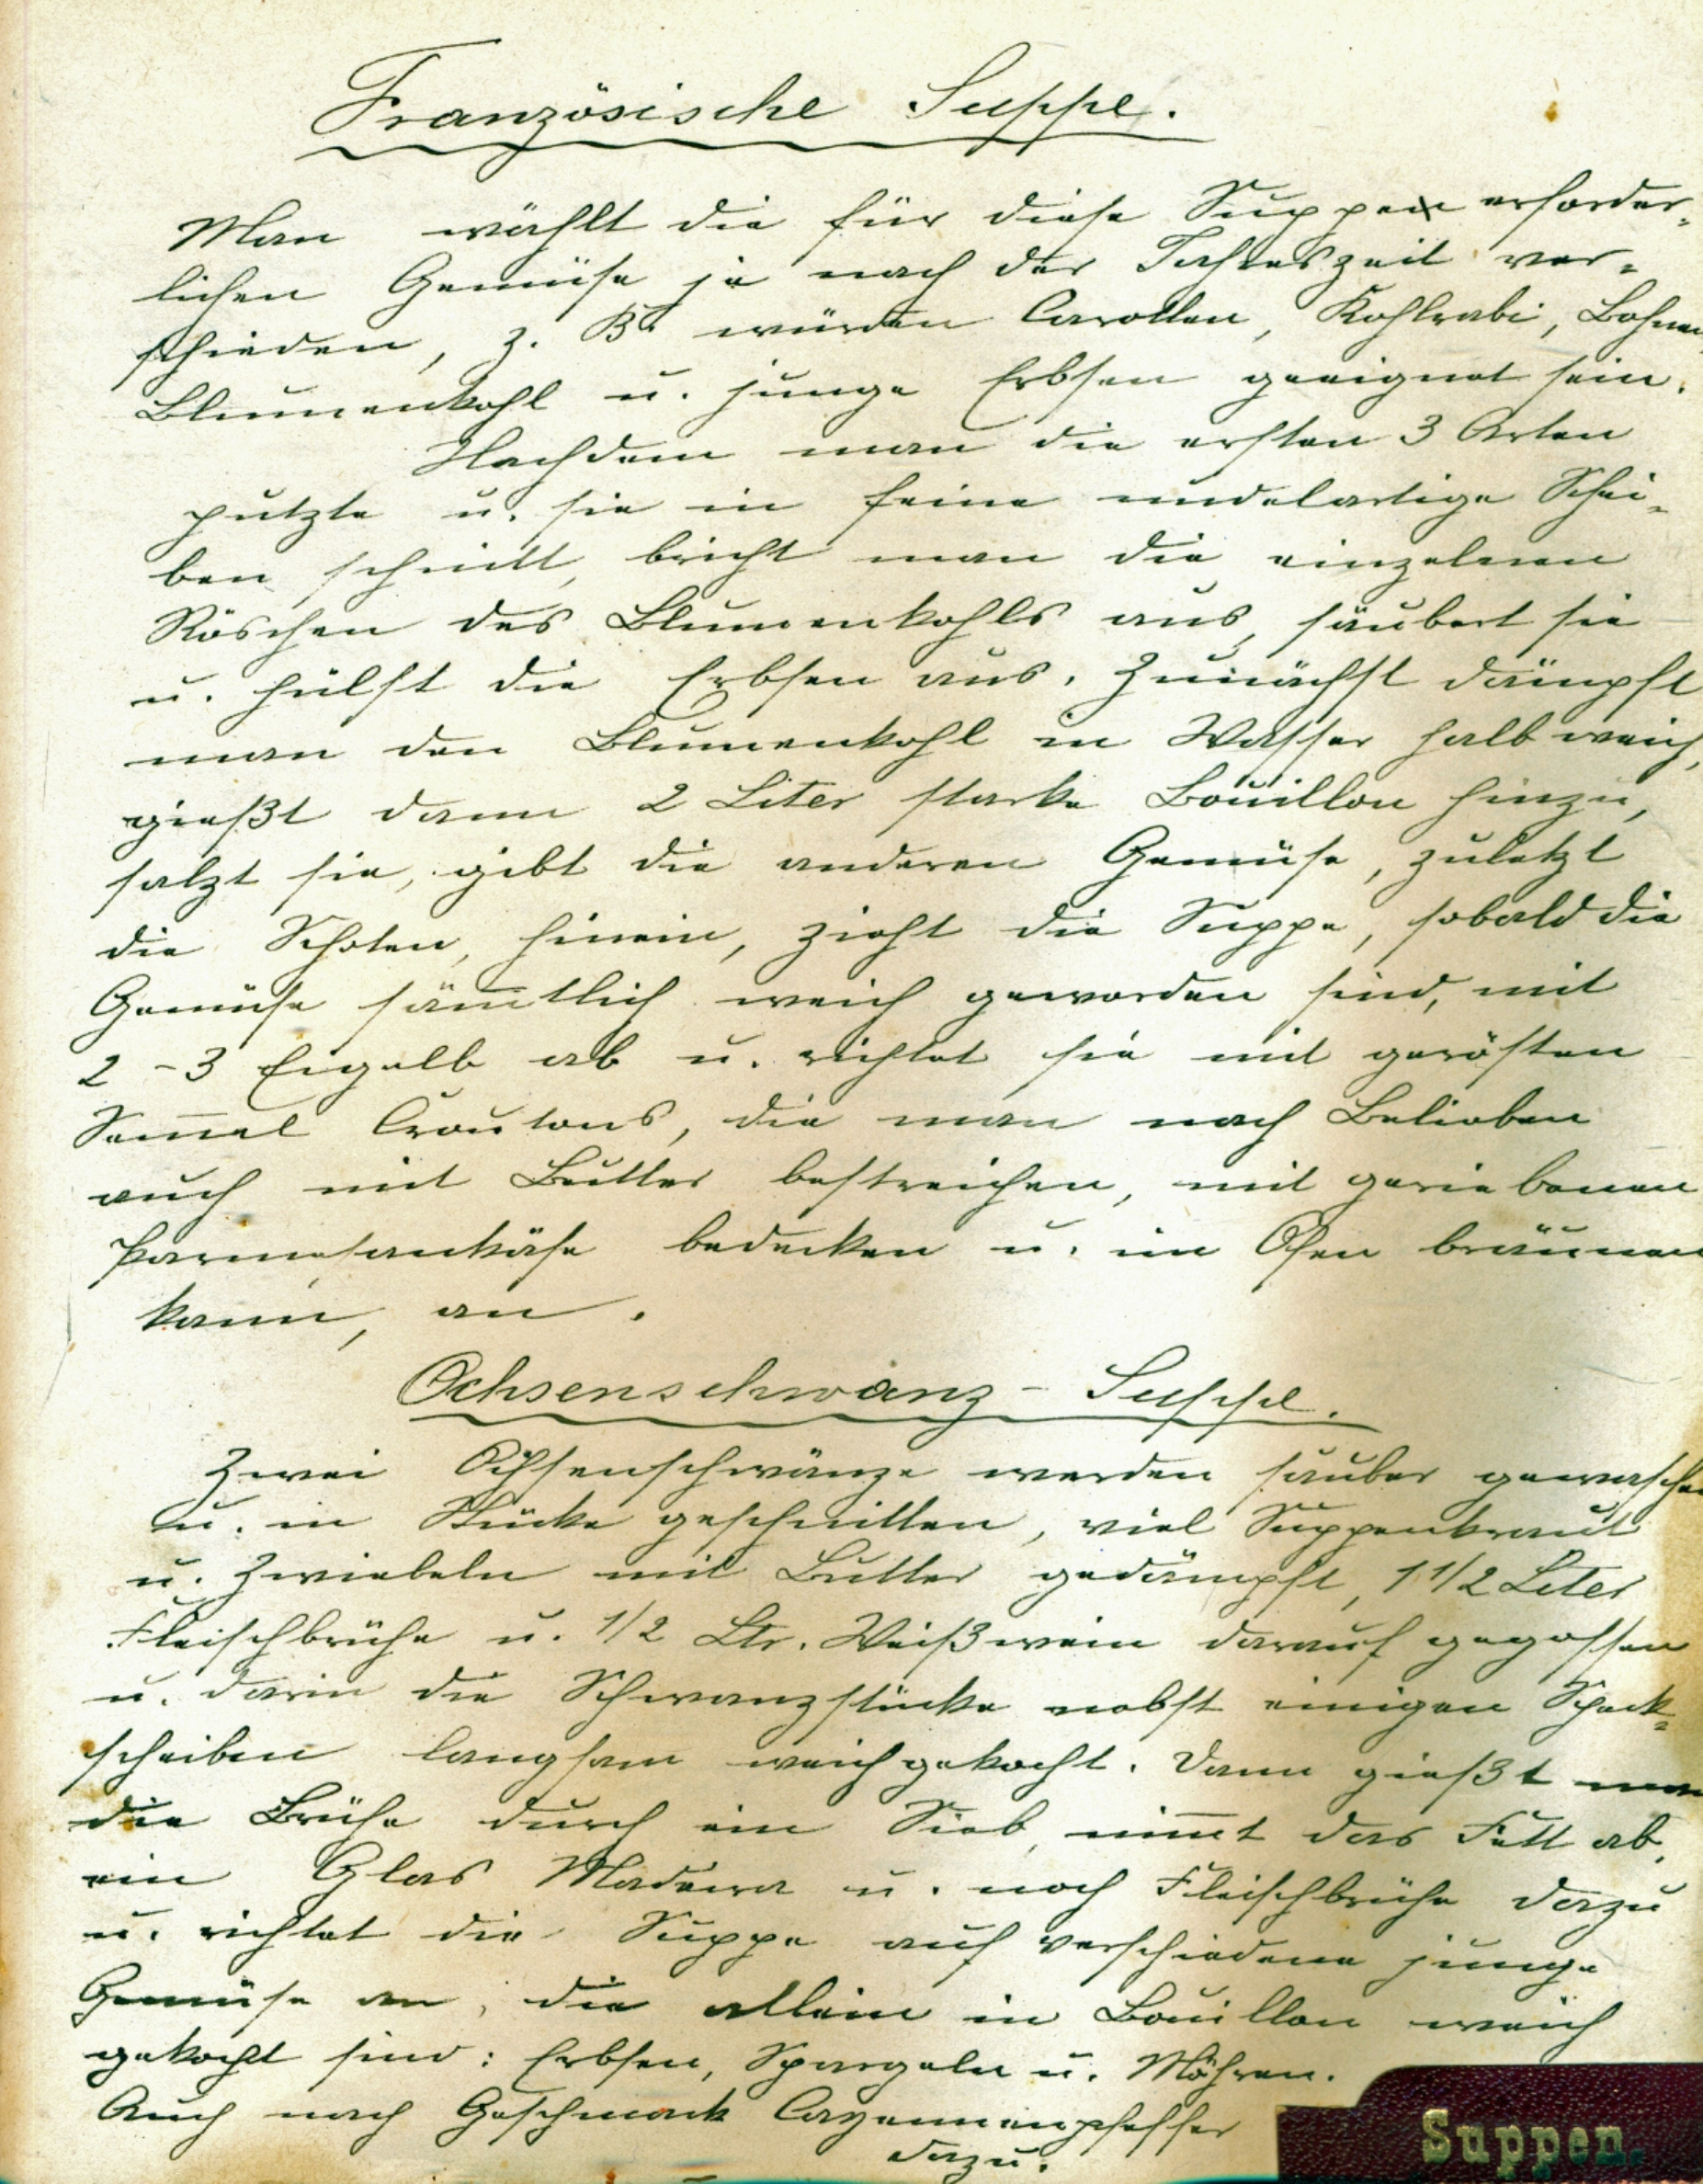 Französische Suppe.
Man wählt die für diese Suppen erforder-
lichen Gemüse je nach der Jahreszeit ver-
schieden, z. B. würden Carotten, Kohlrabi, Bohnen
Blumenkohl u. junge Erbsen geeignet sein.
Nachdem man die ersten 3 Arten
putzte u. sie in feine nudelartige Schei-
ben schnitt, bricht man die einzelnen
Röschen des Blumenkohls aus, säubert sie
u. hülst die Erbsen aus. Zunächst dämpft
man den Blumenkohl in Wasser halb weich,
gießt dann 2 Liter starke Bouillon hinzu,
salzt sie, gibt die anderen Gemüse, zuletzt
die Schoten, hinein, zieht die Suppe, sobald die
Gemüse säm̅tlich weich geworden sind, mit
2-3 Eigelb ab u. richtet sie mit gerösten
Sem̅el Croutons, die man nach Belieben
auch mit Butter bestreichen, mit geriebenen
Parmesankäse bedecken u. im Ofen bräunen
kann, an.
Ochsenschwanz-Suppe.
Zwei Ochsenschwänze werden sauber gewaschen
u. in Stücke geschnitten, viel Suppenkraut
u. Zwiebeln mit Butter gedämpft, 1 1/2 Liter
Fleischbrühe u. 1/2 Ltr. Weißwein darauf gegossen
u. darin die Schwanzstücke nebst einigen Speck-
scheiben langsam weichgekocht. Dann gießt man
die Brühe durch ein Sieb, nim̅t das Fett ab,
ein Glas Madeira u. noch Fleischbrühe dazu
u. richtet die Suppe auf verschiedene junge
Gemüse an, die allein in Bouillon weich
gekocht sind: Erbsen, Spargeln u. Möhren.
Auch nach Geschmack Cayennenpfeffer
dazu.
Suppen.